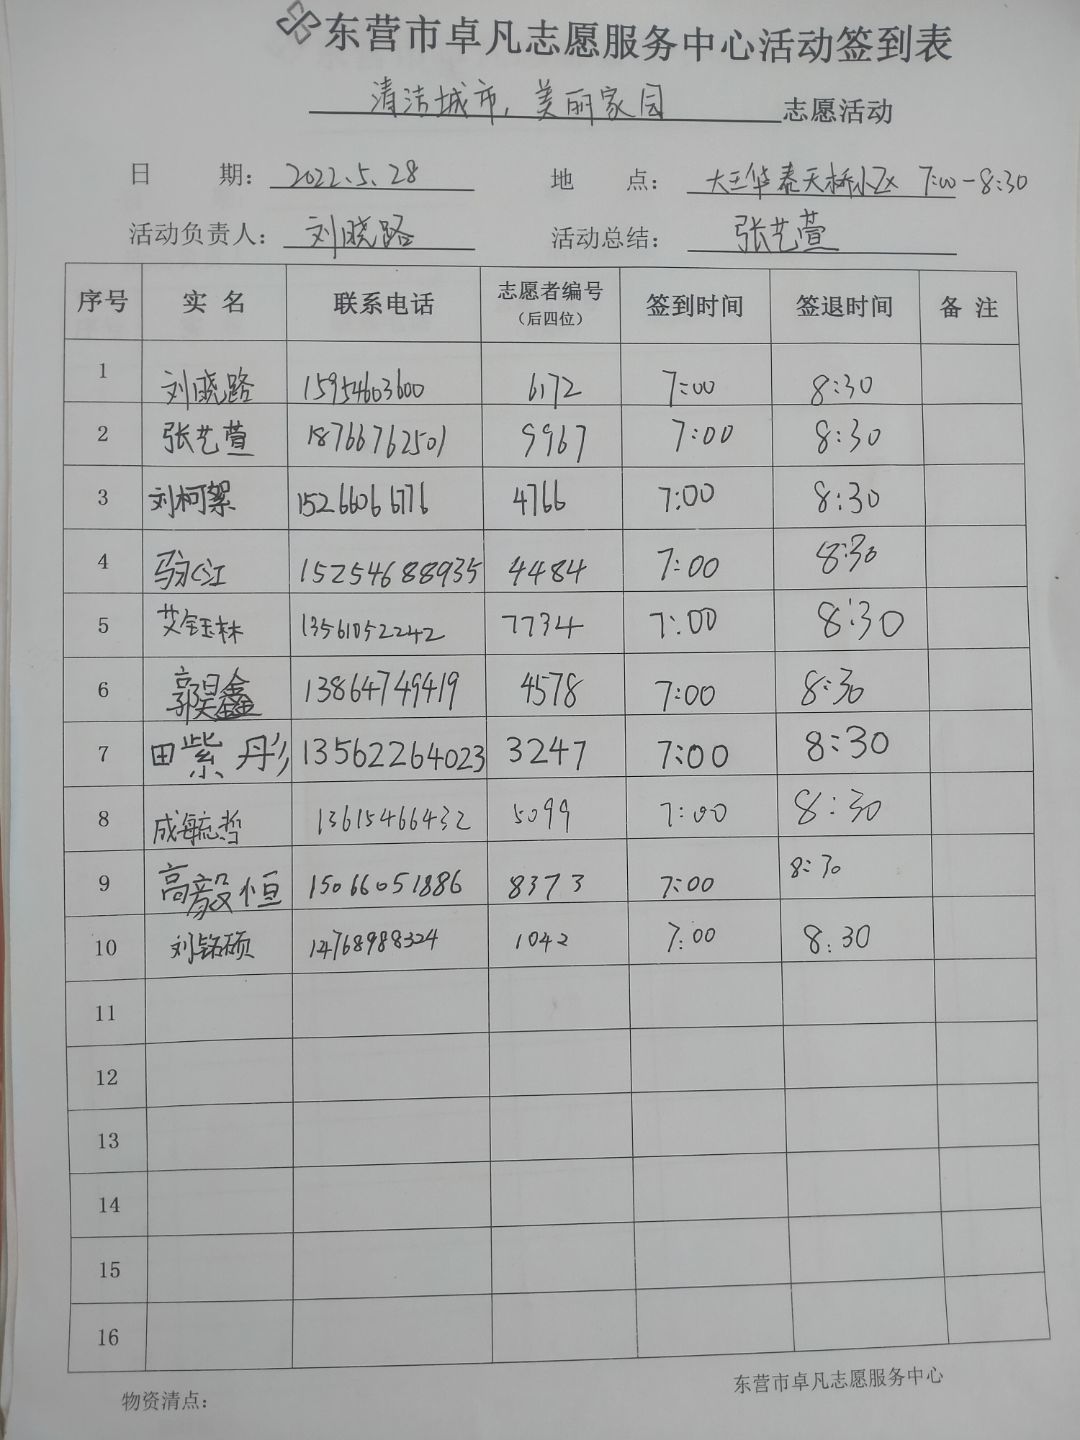 东营市卓凡志愿服务中心活动签到表
清洁城市，美丽家园 志愿活动
日 期：2022.5.28 地 点：大王华泰天桥小区 7:00-8:30
活动负责人：刘晓路 活动总结：张艺萱
序号 实名 联系电话 志愿者编号（后四位） 签到时间 签退时间 备注
1 刘晓路 15954603600 6172 7:00 8:30
2 张艺萱 18766762501 9967 7:00 8:30
3 刘柯絮 15266066776 4766 7:00 8:30
4 15254688935 4484 7:00 8:30
5 艾钰林 13561052242 7734 7:00 8:30
6 郭昊鑫 13864749419 4578 7:00 8:30
7 田紫彤 13562264023 3247 7:00 8:30
8 成毓哲 13615466432 5099 7:00 8:30
9 高毅恒 15066051886 8373 7:00 8:30
10 刘铭硕 14768988324 1042 7:00 8:30
11
12
13
14
15
16
物资清点： 东营市卓凡志愿服务中心